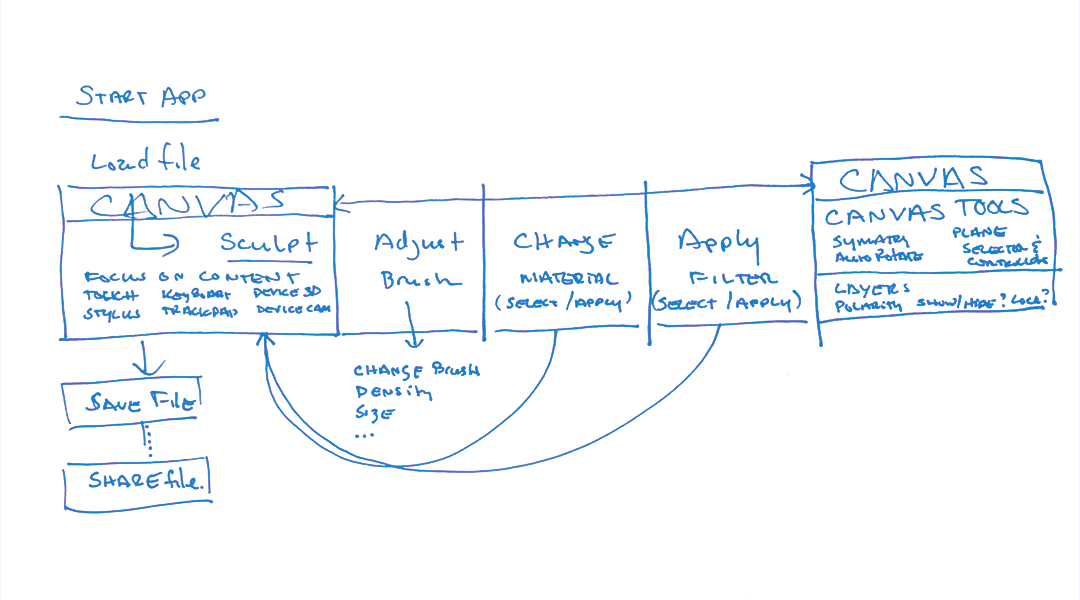 START APP
Load file
CANVAS
Sculpt
FOCUS ON CONTENT
TOUCH KEYBOART DEVICE 3D
STYLUS TRACKPAD DEVICE CAM
Adjust
Brush
CHANGE Brush
DENSITY
SIZE
...
CHANGE
MATERIAL
(SELECT/APPLY)
Apply
FILTER
(SELECT/APPLY)
CANVAS
CANVAS TOOLS
SYMATRY
AUTO ROTATE
PLANE
SELECTOR &
CONTROLLERS
LAYERS
POLARITY SHOW/HIDE? LOCK?
SAVE FILE
SHARE file.